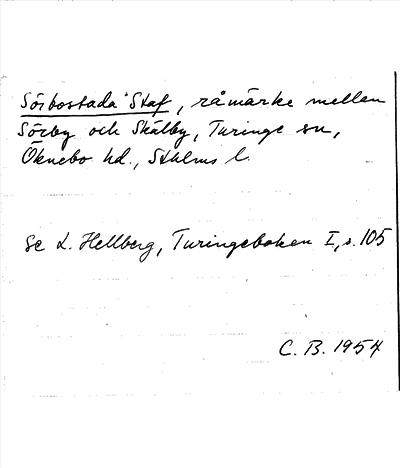 Sörbostada Staf, råmärke mellan
Sörby och Skälby, Turinge sn,
Öknebo hd., Sthlms l.
Se L. Hellberg, Turingeboken I, s. 105
C. B. 1954